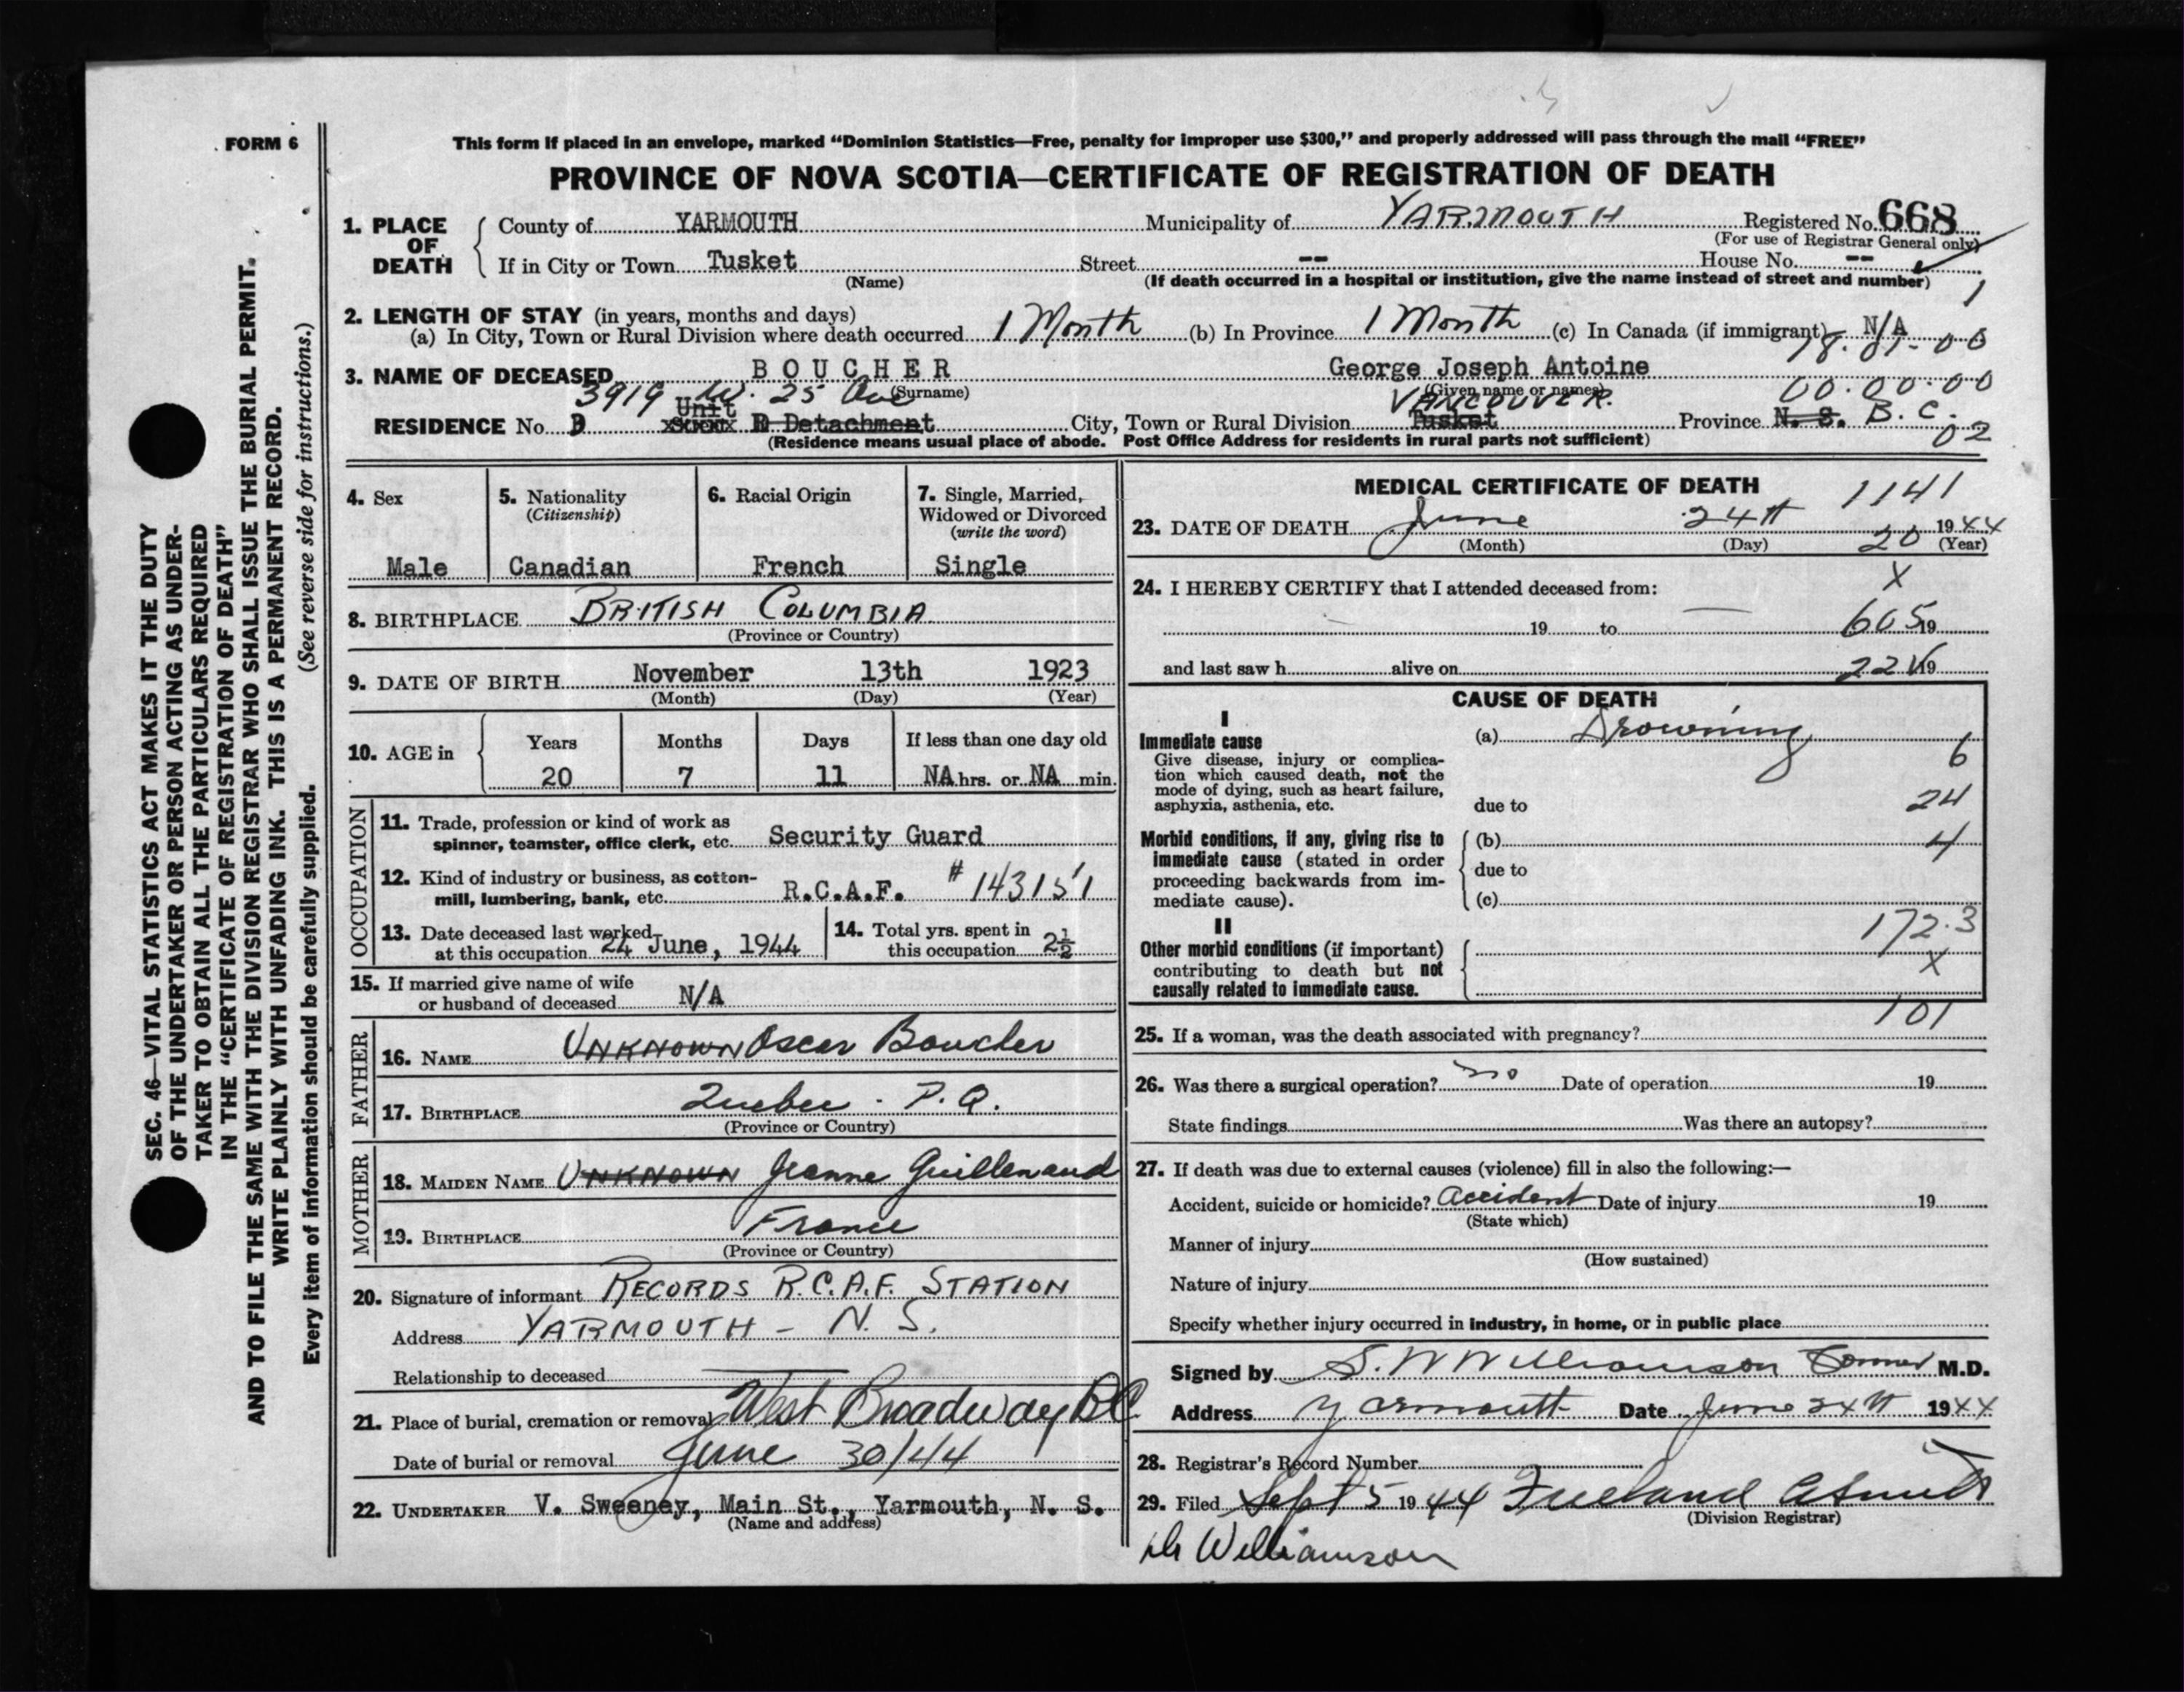 FORM 6
This form if placed in an envelope, marked “Dominion Statistics—Free, penalty for improper use $300,” and properly addressed will pass through the mail “FREE”
PROVINCE OF NOVA SCOTIA—CERTIFICATE OF REGISTRATION OF DEATH
1. PLACE OF DEATH County of YARMOUTH Municipality of YARMOUTH Registered No. 668
(For use of Registrar General only)
If in City or Town Tusket Street -- House No. --
(Name) (If death occurred in a hospital or institution, give the name instead of street and number)
1
2. LENGTH OF STAY (in years, months and days)
(a) In City, Town or Rural Division where death occurred 1 Month (b) In Province 1 Month (c) In Canada (if immigrant) N/A
18.01-00
3. NAME OF DECEASED BOUCHER George Joseph Antoine
(Surname) (Given name or names) 00.00.00
3919 W. 25 Ave VANCOUVER.
Unit
RESIDENCE No. B D Detachment City, Town or Rural Division Tusket Province N. S. B. C.
(Residence means usual place of abode. Post Office Address for residents in rural parts not sufficient) 02
4. Sex
Male
5. Nationality
(Citizenship)
Canadian
6. Racial Origin
French
7. Single, Married,
Widowed or Divorced
(write the word)
Single
8. BIRTHPLACE BRITISH COLUMBIA
(Province or Country)
9. DATE OF BIRTH November 13th 1923
(Month) (Day) (Year)
10. AGE in Years Months Days If less than one day old
20 7 11 NA hrs. or NA min.
OCCUPATION
11. Trade, profession or kind of work as
spinner, teamster, office clerk, etc. Security Guard
12. Kind of industry or business, as cotton-
mill, lumbering, bank, etc. R.C.A.F. # 143151
13. Date deceased last worked
at this occupation 24 June, 1944
14. Total yrs. spent in
this occupation 2½
15. If married give name of wife
or husband of deceased N/A
FATHER
16. NAME UNKNOWN Oscar Boucher
17. BIRTHPLACE Quebec - P.Q.
(Province or Country)
MOTHER
18. MAIDEN NAME UNKNOWN Jeanne Guillemaud
19. BIRTHPLACE France
(Province or Country)
20. Signature of informant RECORDS R.C.A.F. STATION
Address YARMOUTH - N. S.
Relationship to deceased
21. Place of burial, cremation or removal West Broadway BC
Date of burial or removal June 30/44
22. UNDERTAKER V. Sweeney, Main St., Yarmouth, N. S.
(Name and address)
MEDICAL CERTIFICATE OF DEATH
1141
23. DATE OF DEATH June 24th 1944
(Month) (Day) 20 (Year)
X
24. I HEREBY CERTIFY that I attended deceased from:
19 to 605 19
and last saw h alive on 22V 19
CAUSE OF DEATH
I
Immediate cause
Give disease, injury or complica-
tion which caused death, not the
mode of dying, such as heart failure,
asphyxia, asthenia, etc.
(a) Drowning
6
due to 24
Morbid conditions, if any, giving rise to
immediate cause (stated in order
proceeding backwards from im-
mediate cause).
(b) 4
due to
(c)
II
172.3
Other morbid conditions (if important)
contributing to death but not
causally related to immediate cause.
X
101
25. If a woman, was the death associated with pregnancy?
26. Was there a surgical operation? no Date of operation 19
State findings Was there an autopsy?
27. If death was due to external causes (violence) fill in also the following:—
Accident, suicide or homicide? Accident Date of injury 19
(State which)
Manner of injury
(How sustained)
Nature of injury
Specify whether injury occurred in industry, in home, or in public place
Signed by S. W Williamson Coroner M.D.
Address Yarmouth Date June 24th 1944
28. Registrar's Record Number
29. Filed Sept 5 1944 Freeland
(Division Registrar)
Dr Williamson
SEC. 46—VITAL STATISTICS ACT MAKES IT THE DUTY
OF THE UNDERTAKER OR PERSON ACTING AS UNDER-
TAKER TO OBTAIN ALL THE PARTICULARS REQUIRED
IN THE “CERTIFICATE OF REGISTRATION OF DEATH”
AND TO FILE THE SAME WITH THE DIVISION REGISTRAR WHO SHALL ISSUE THE BURIAL PERMIT.
WRITE PLAINLY WITH UNFADING INK. THIS IS A PERMANENT RECORD.
Every item of information should be carefully supplied. (See reverse side for instructions.)